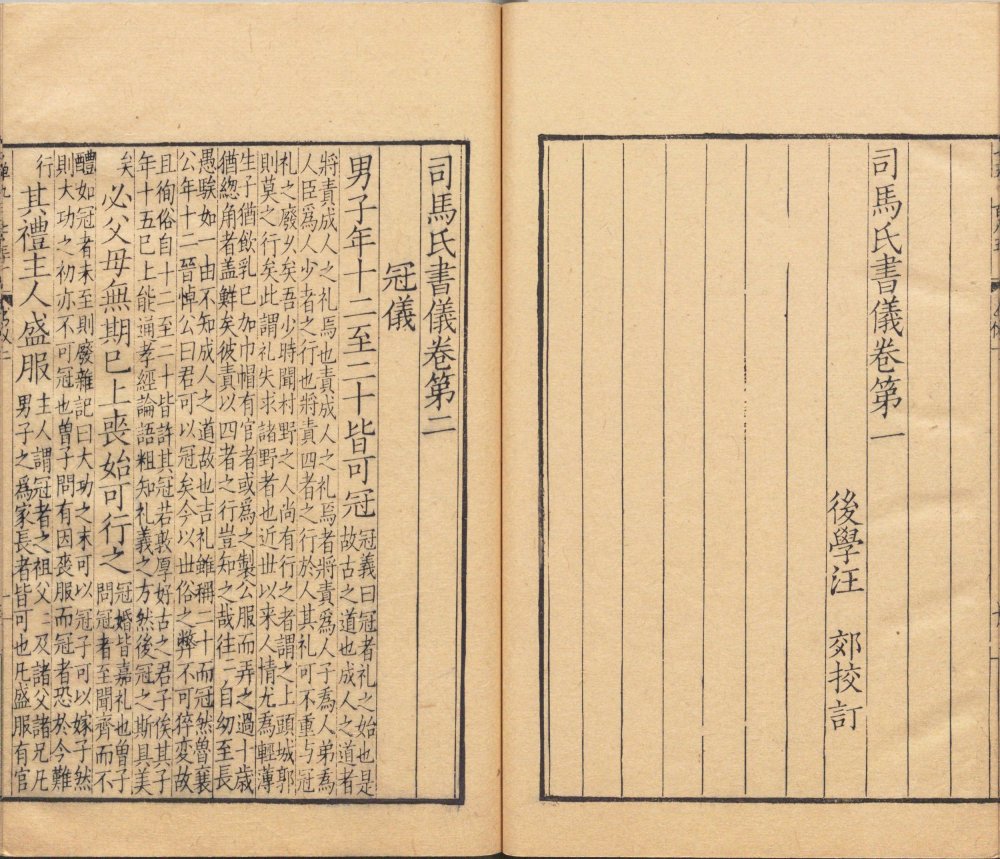 司馬氏書儀卷第一
後學汪 郊挍訂
司馬氏書儀卷第二
冠儀
男子年十二至二十皆可冠
冠義曰冠者礼之始也是
故古之道也成人之道者
將責成人之礼焉也責成人之礼焉者將責爲人子爲人弟爲
人臣爲人少者之行也將責四者之行於人其礼可不重与冠
礼之廢乆矣吾少時聞村野之人尚有行之者謂之上頭城郭
則莫之行矣此謂礼失求諸野者也近世以来人情尤爲輕薄
生子猶飲乳已加巾帽有官者或爲之製公服而弄之過十歲
猶緫角者盖鮮矣彼責以四者之行豈知之哉往二自幼至長
愚騃如一由不知成人之道故也吉礼雖稱二十而冠然魯襄
公年十二晉悼公曰君可以冠矣今以世俗之弊不可猝變故
且徇俗自十二至二十皆許其冠若敦厚好古之君子俟其子
年十五已上能通孝經論語粗知礼義之方然後冠之斯具美
矣
必父母無期已上喪始可行之
冠婚皆嘉礼也曽子
問冠者至聞齊而不
醴如冠者未至則廢雜記曰大功之末可以冠子可以嫁子然
則大功之初亦不可冠也曽子問有因喪服而冠者恐於今難
行
其禮主人盛服
主人謂冠者之祖父二及諸父諸兄凡
男子之爲家長者皆可也凡盛服有官